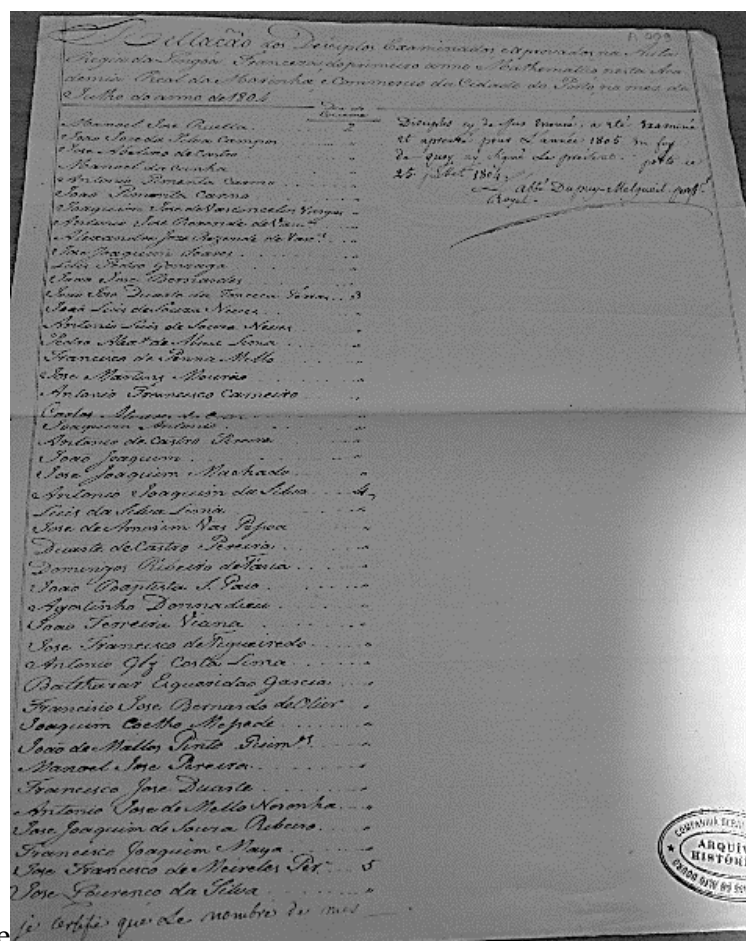 A 099
Rellação dos Discipulos Examinados e aprovados na Aula
Regia da Lingoa Franceza do primeiro anno Mathematico, nesta Aca
demia Real da Marinha e Commercio da Cidade do Porto, no mes de
Julho do anno de 1804
Dia do
Exame
Manoel Jose
João Jose da Silva Campos "
Jose Monteiro de Castro "
Manoel da Cunha "
Antonio Pimenta Carmo "
João Pimenta Carmo "
Joaquim Jose de Vasconcelos "
Antonio Jose Rezende de Vas.cos "
Alexandre Jose Rezende de Vas.cos "
Jose Joaquim Soares "
Luis Pedro Gonzaga "
João Jose Bernardes "
João Jose Duarte da Fonceca 3
João Luis de Souza Neves "
Antonio Luis de Souza Neves "
Pedro de Lima "
Francisco de Penna Mello "
Jose Martins Mourão "
Antonio Francisco Carneiro "
Carlos
Joaquim Antonio "
Antonio de Castro Pereira "
João Joaquim "
Jose Joaquim Machado "
Antonio Joaquim da Silva 4
Luis da Silva Lima "
Jose de Amorim Vas Pessoa "
Duarte de Castro Pereira "
Domingos Ribeiro de Faria "
João Baptista S. Paio "
Agostinho Donnadieu "
João Ferreira Viana "
Jose Francisco de Figueiredo "
Antonio Glz Costa Lima "
Balthazar Garcia "
Francisco Jose Bernardo de "
Joaquim Coelho "
João de Mattos Pinto "
Manoel Jose Pereira "
Francisco Jose Duarte "
Antonio Jose de Mello Noronha "
Jose Joaquim de Souza Ribeiro "
Francisco Joaquim Maya "
Jose Francisco de Meireles Per. 5
Jose Lourenco da Silva "
je certifie que le nombre de mes
Disciples cy de sus enoncé, a eté examiné
et aprouvé pour l'année 1805 en foy
de quoy, j'ay signé le present. porto ce
25 juillet 1804
L'abbé Dupuy-Melgueil prof.
Royal
ARQUIV
HISTÓRI